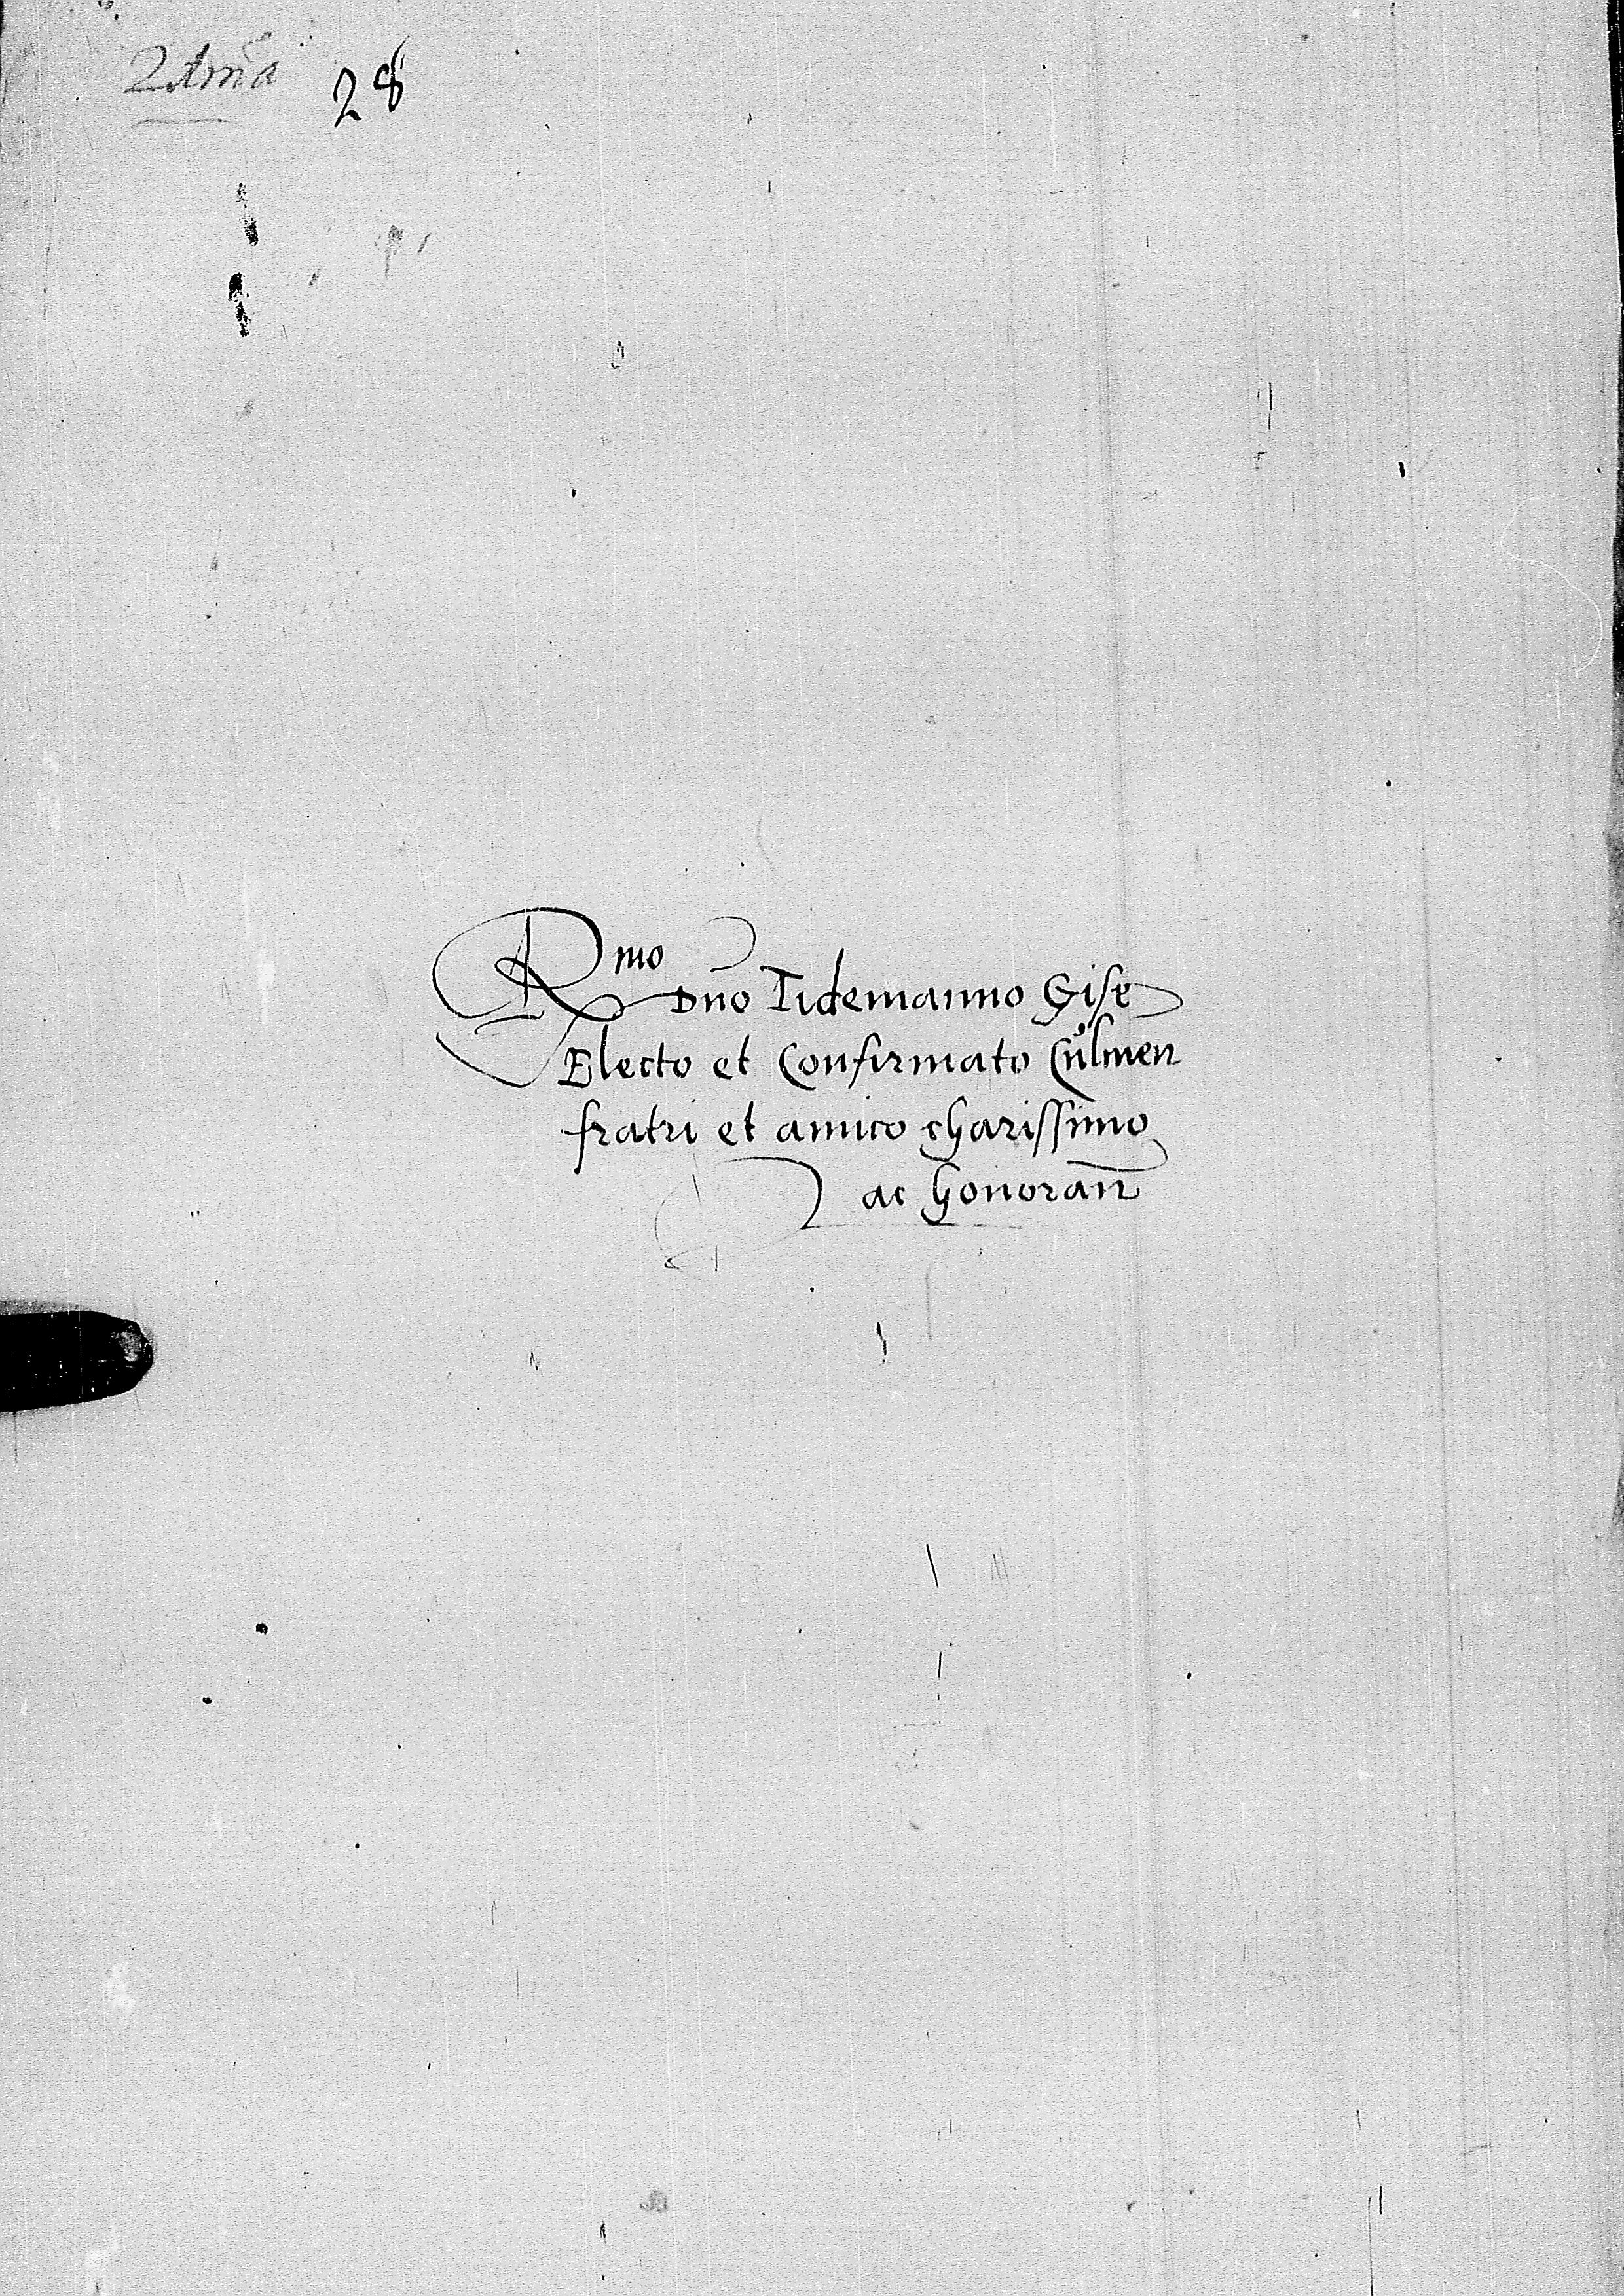 28
Rmo
Dño Tidemanno Gise
Electo et Confirmato Culmeñ
fratri et amico charissimo
ac honorañ